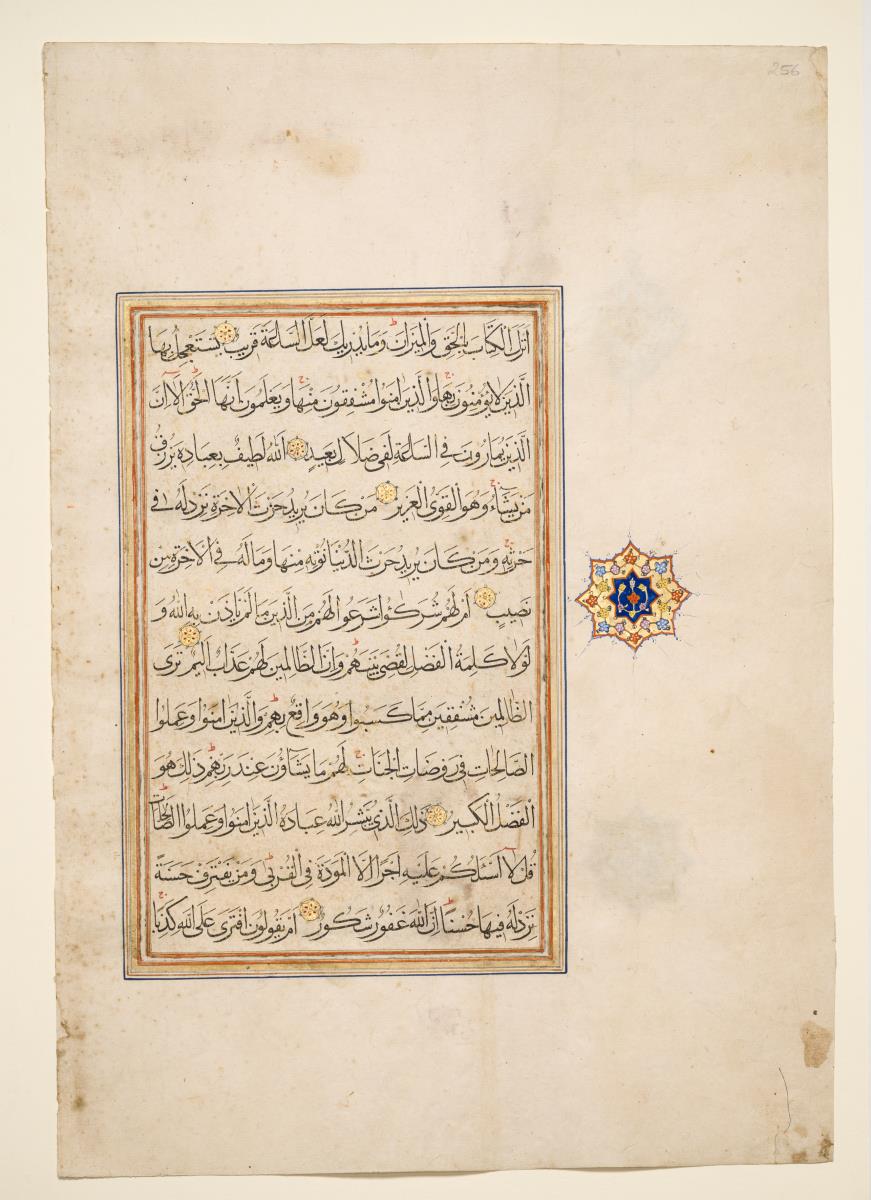 256
اَنْزَلَ الْكِتَابَ بِالْحَقِّ وَالْمِيزَانَ وَمَا يُدْرِيكَ لَعَلَّ السَّاعَةَ قَرِيبٌ يَسْتَعْجِلُ بِهَا
الَّذِينَ لَا يُؤْمِنُونَ بِهَا وَالَّذِينَ اٰمَنُوا مُشْفِقُونَ مِنْهَا وَيَعْلَمُونَ اَنَّهَا الْحَقُّ اَلَا اِنَّ
الَّذِينَ يُمَارُونَ فِي السَّاعَةِ لَفِي ضَلَالٍ بَعِيدٍ اَللّٰهُ لَطِيفٌ بِعِبَادِهِ يَرْزُقُ
مَنْ يَشَآءُ وَهُوَ الْقَوِيُّ الْعَزِيزُ مَنْ كَانَ يُرِيدُ حَرْثَ الْاٰخِرَةِ نَزِدْ لَهُ فِي
حَرْثِهِ وَمَنْ كَانَ يُرِيدُ حَرْثَ الدُّنْيَا نُؤْتِهِ مِنْهَا وَمَا لَهُ فِي الْاٰخِرَةِ مِنْ
نَصِيبٍ اَمْ لَهُمْ شُرَكٰٓؤُا شَرَعُوا لَهُمْ مِنَ الدِّينِ مَا لَمْ يَأْذَنْ بِهِ اللّٰهُ وَ
لَوْلَا كَلِمَةُ الْفَصْلِ لَقُضِيَ بَيْنَهُمْ وَاِنَّ الظَّالِمِينَ لَهُمْ عَذَابٌ اَلِيمٌ تَرَى
الظَّالِمِينَ مُشْفِقِينَ مِمَّا كَسَبُوا وَهُوَ وَاقِعٌ بِهِمْ وَالَّذِينَ اٰمَنُوا وَعَمِلُوا
الصَّالِحَاتِ فِي رَوْضَاتِ الْجَنَّاتِ لَهُمْ مَا يَشَآؤُنَ عِنْدَ رَبِّهِمْ ذٰلِكَ هُوَ
الْفَضْلُ الْكَبِيرُ ذٰلِكَ الَّذِي يُبَشِّرُ اللّٰهُ عِبَادَهُ الَّذِينَ اٰمَنُوا وَعَمِلُوا الصَّالِحَاتِ
قُلْ لَآ اَسْئَلُكُمْ عَلَيْهِ اَجْرًا اِلَّا الْمَوَدَّةَ فِي الْقُرْبٰى وَمَنْ يَقْتَرِفْ حَسَنَةً
نَزِدْ لَهُ فِيهَا حُسْنًا اِنَّ اللّٰهَ غَفُورٌ شَكُورٌ اَمْ يَقُولُونَ افْتَرٰى عَلَى اللّٰهِ كَذِبًا